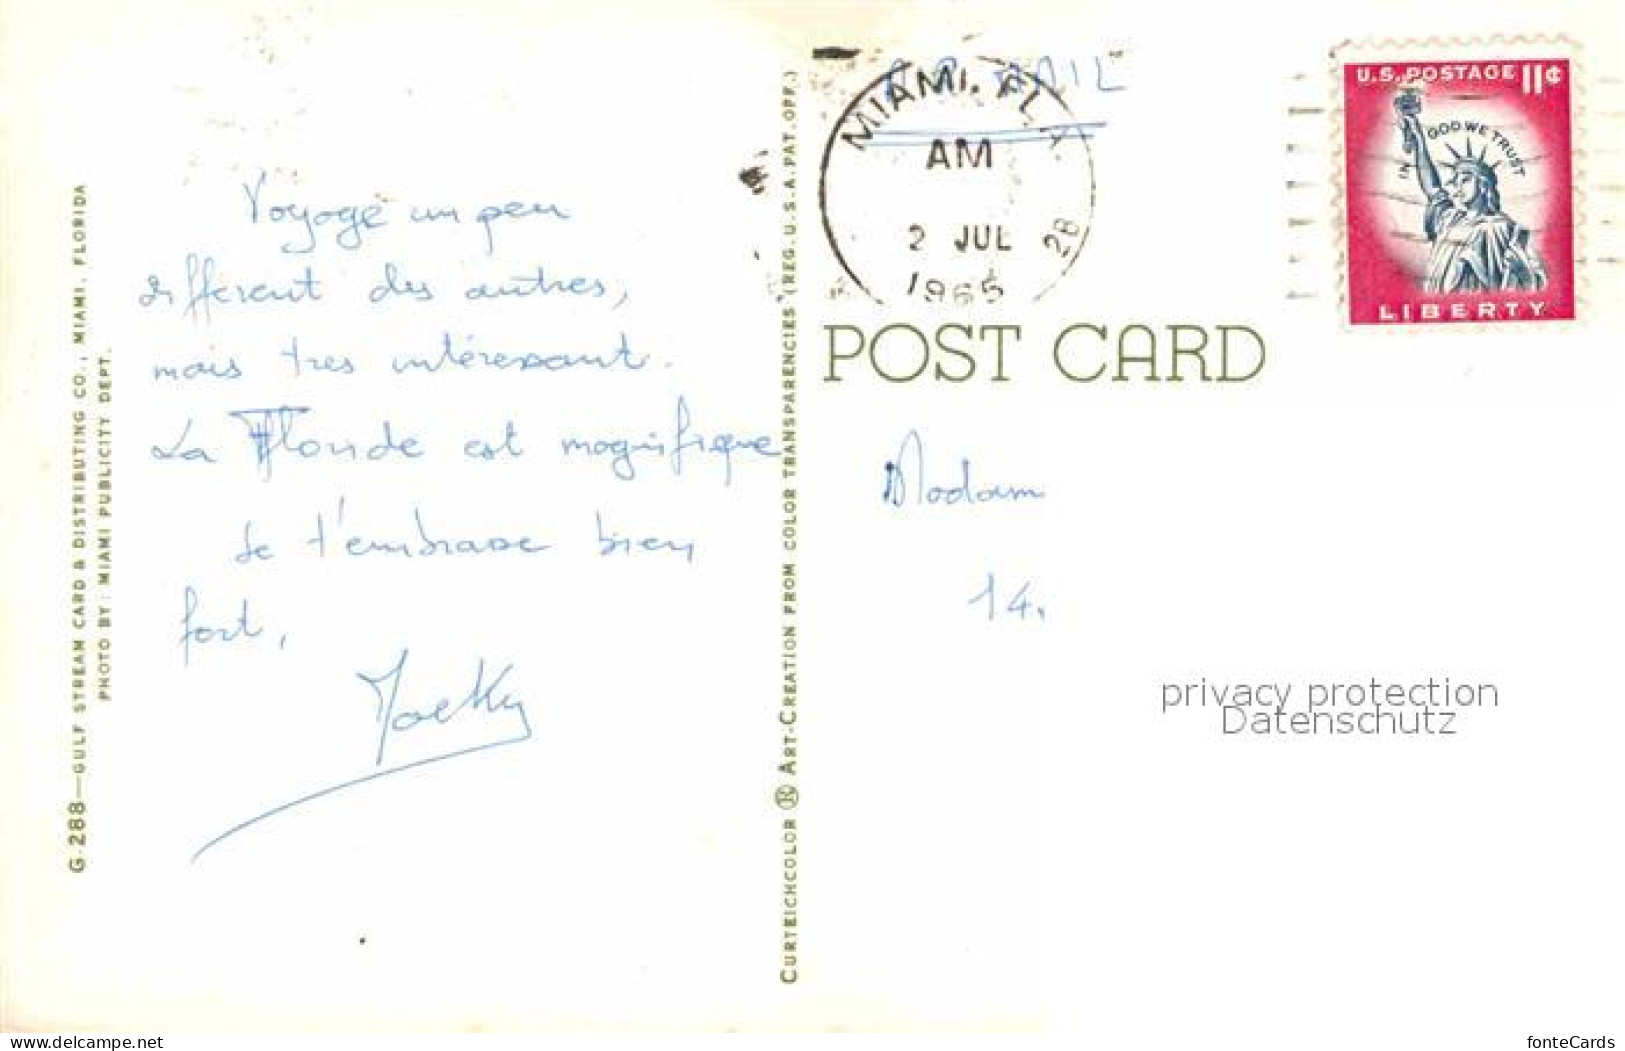 Voyage un peu
different des autres,
mais tres intéressant.
La Floride est magnifique
Je t'embrasse bien
fort,
Jacky
G-288—GULF STREAM CARD & DISTRIBUTING CO., MIAMI, FLORIDA
PHOTO BY: MIAMI PUBLICITY DEPT.
CURTEICHCOLOR ® ART-CREATION FROM COLOR TRANSPARENCIES (REG. U.S.A. PAT. OFF.)
AIR MAIL
MIAMI, FLA.
AM
2 JUL
1965
28
U.S. POSTAGE 11¢
IN GOD WE TRUST
LIBERTY
POST CARD
Madam
14.
privacy protection
Datenschutz
www.delcampe.net
fonteCards